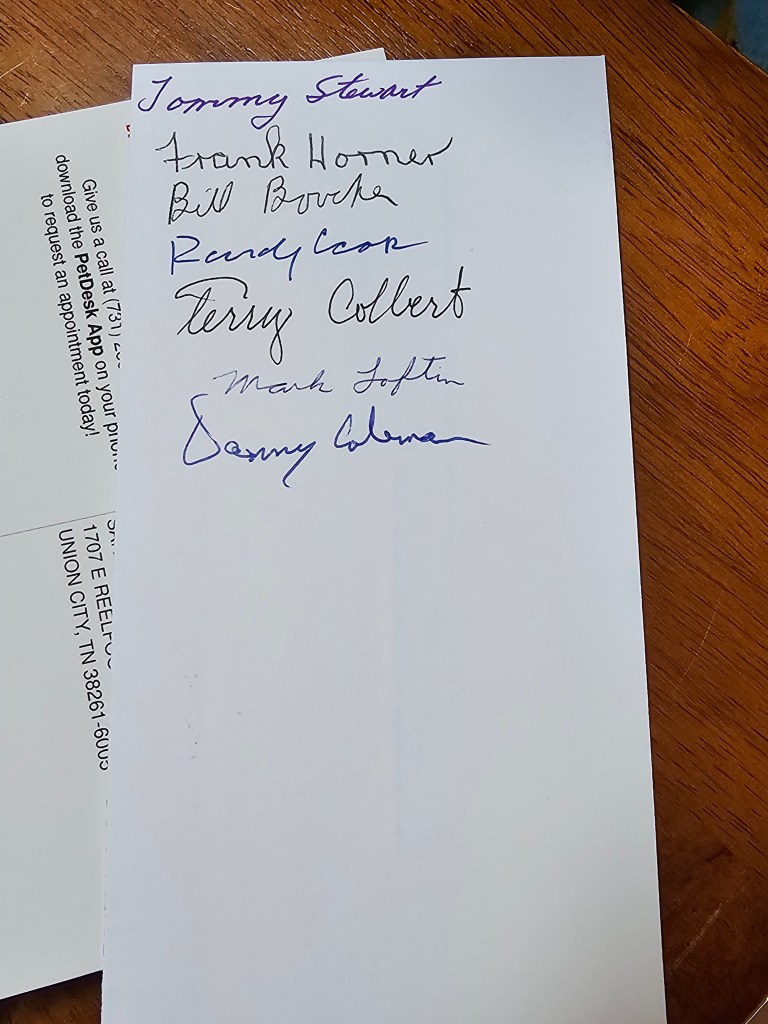 Tommy Stewart
Frank Horner
Bill
Randy
Terry Colbert
Mark Loftin
Danny Coleman
Give us a call at (731)
download the PetDesk App on your
to request an appointment today!
1707 E
UNION CITY, TN